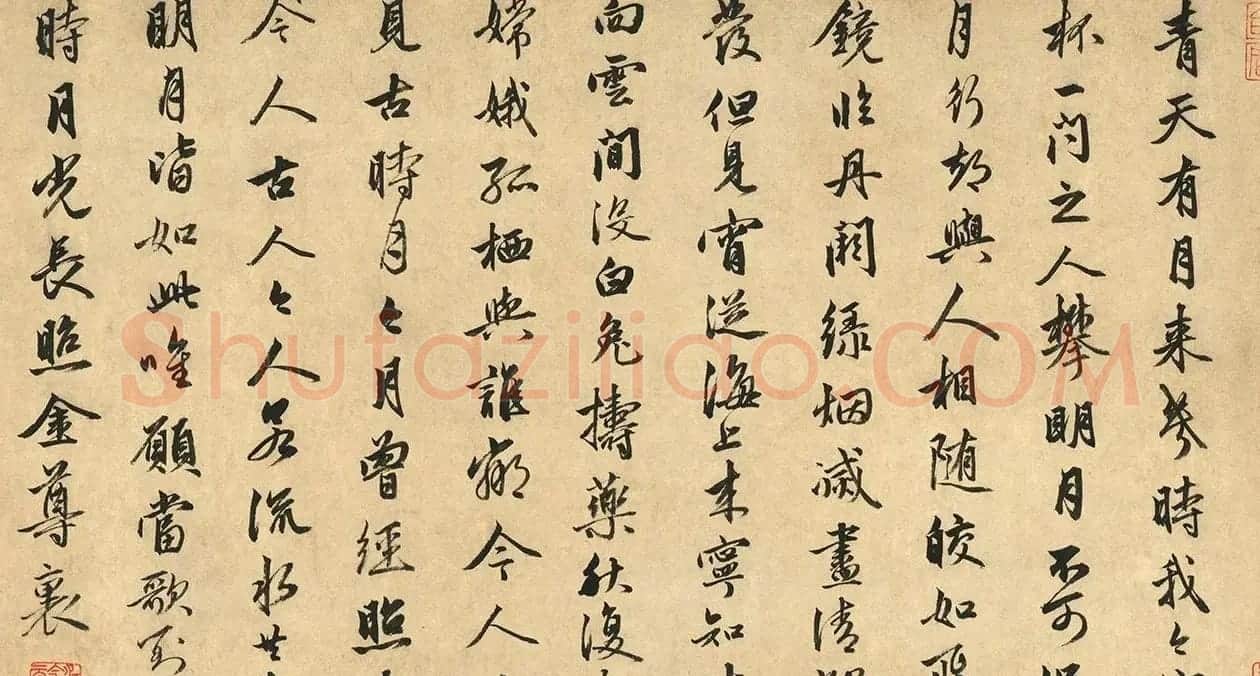 青天有月来幾時我今
杯一問之人攀明月不可
月行却與人相随皎如飛
鏡臨丹闕緑烟滅盡清
發但見宵從海上来寧知
向雲間没白兔擣藥秋復
嫦娥孤栖與誰鄰今人
見古時月今月曾經照
今人古人今人若流水共
明月皆如此唯願當歌對
時月光長照金尊裏
Shufaziliao.COM